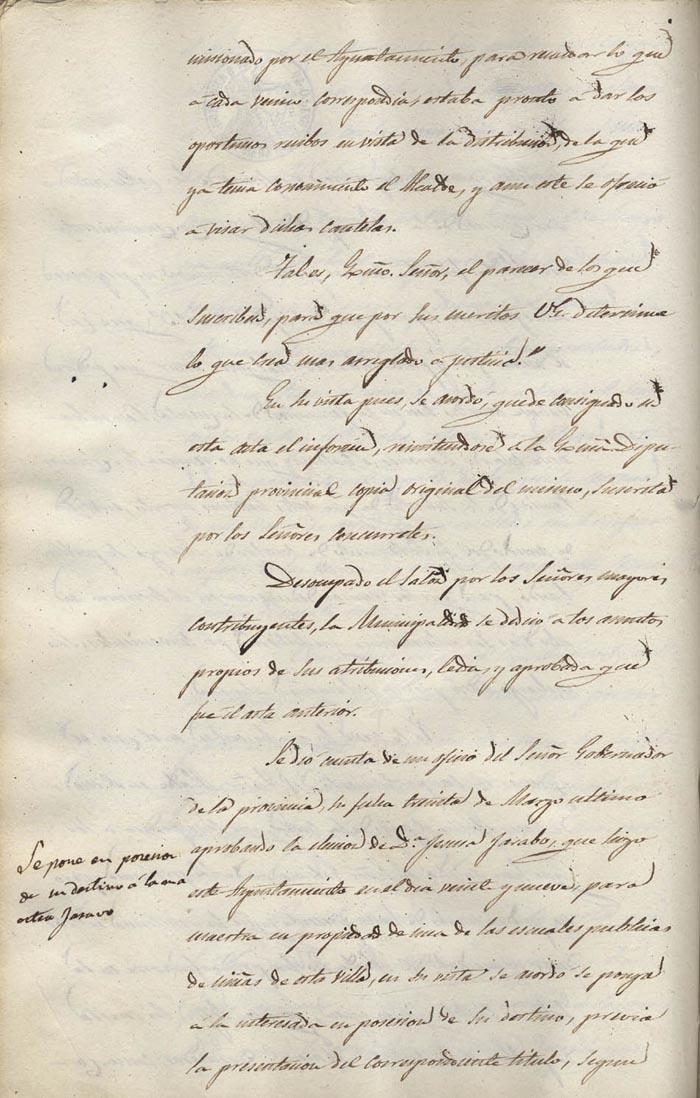 misionado por el Ayuntamiento, para recaudar lo que
á cada vecino correspondia, estaba pronto a dar los
oportunos recibos en vista de la distribucion, de la que
ya tenia conocimiento el Alcalde, y aun este se ofreció
a visar dichas cartelas.
Tal es, Exmo. Señor, el parecer de los que
suscriben, para que por sus meritos V.E. determine
lo que crea mas arreglado a justicia."
En su vista pues, se acordó, quede consignado en
esta acta el informe, remitiendose á la Exma. Dipu-
tacion provincial copia original del mismo, suscrita
por los Señores concurrentes.
Desocupado el salon por los Señores mayores
contribuyentes, la Municipalidad se dedicó a los asuntos
propios de sus atribuciones, leida, y aprobada que
fue el acta anterior.
Se dió cuenta de un oficio del Señor Gobernador
de la provincia, su fecha treinta de Marzo ultimo
aprobando la eleccion de D.ª Jesusa Jarabo, que hizo
este Ayuntamiento en el dia veinte y nueve, para
maestra en propiedad de una de las escuelas publicas
de niñas de esta Villa, en su vista se acordó se ponga
á la interesada en posesion de su destino, previa
la presentacion del correspondiente titulo, segun
Se pone en posesion
de su destino á la ma
estra Jaravo